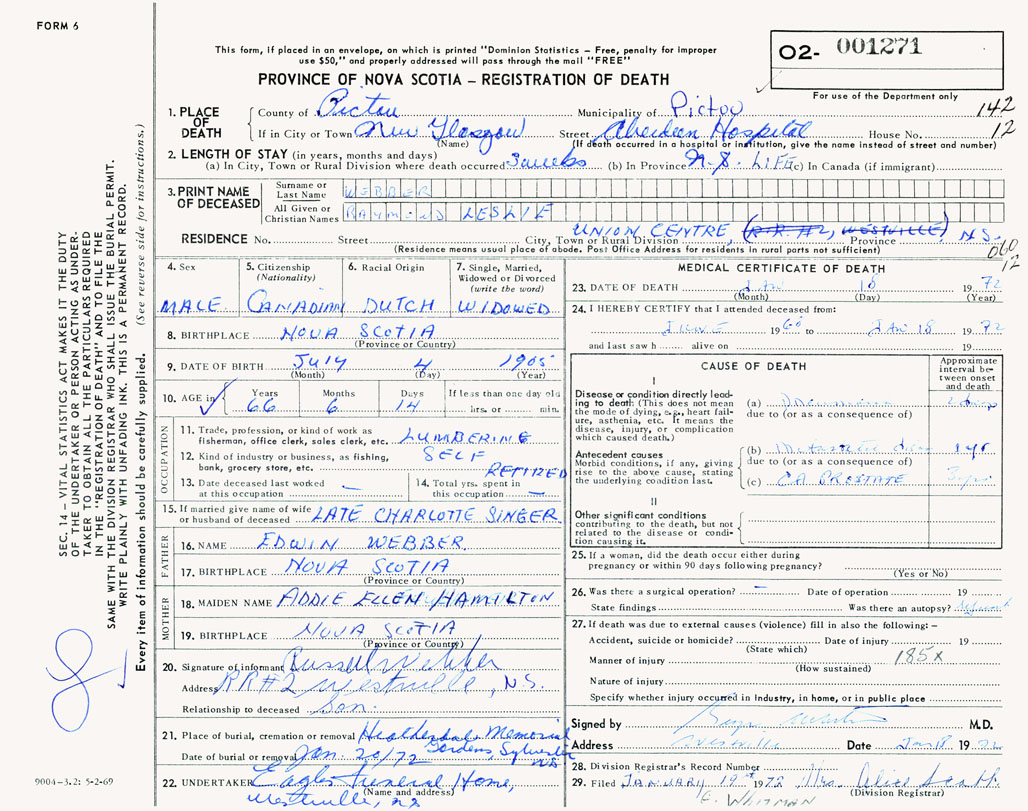 FORM 6
This form, if placed in an envelope, on which is printed "Dominion Statistics – Free, penalty for improper
use $50," and properly addressed will pass through the mail "FREE"
PROVINCE OF NOVA SCOTIA – REGISTRATION OF DEATH
O2- 001271
For use of the Department only
142
12
1. PLACE OF DEATH
County of Pictou Municipality of Pictou
If in City or Town New Glasgow Street Aberdeen Hospital House No.
(Name) (If death occurred in a hospital or institution, give the name instead of street and number)
2. LENGTH OF STAY (in years, months and days)
(a) In City, Town or Rural Division where death occurred 3 weeks (b) In Province N.S. LIFE (c) In Canada (if immigrant)
3. PRINT NAME OF DECEASED
Surname or Last Name WEBBER
All Given or Christian Names RAYMOND LESLIE
RESIDENCE No. Street City, Town or Rural Division UNION CENTRE, (R.R.#2, WESTVILLE) Province N.S.
(Residence means usual place of abode. Post Office Address for residents in rural parts not sufficient)
060
12
4. Sex MALE
5. Citizenship (Nationality) CANADIAN
6. Racial Origin DUTCH
7. Single, Married, Widowed or Divorced (write the word) WIDOWED
8. BIRTHPLACE NOVA SCOTIA
(Province or Country)
9. DATE OF BIRTH July 4 1905
(Month) (Day) (Year)
10. AGE in Years Months Days If less than one day old
66 6 14 hrs. or min.
OCCUPATION
11. Trade, profession or kind of work as fisherman, office clerk, sales clerk, etc. LUMBERING
12. Kind of industry or business, as fishing, bank, grocery store, etc. SELF
RETIRED
13. Date deceased last worked at this occupation —
14. Total yrs. spent in this occupation —
15. If married give name of wife or husband of deceased LATE CHARLOTTE SINGER
FATHER
16. NAME EDWIN WEBBER
17. BIRTHPLACE NOVA SCOTIA
(Province or Country)
MOTHER
18. MAIDEN NAME ADDIE ELLEN HAMILTON
19. BIRTHPLACE NOVA SCOTIA
(Province or Country)
20. Signature of informant Russell Webber
Address RR#2 Westville, N.S.
Relationship to deceased Son.
21. Place of burial, cremation or removal Heatherdale Memorial Gardens, Sylvester N.S.
Date of burial or removal Jan. 20/72
22. UNDERTAKER Eagles Funeral Home,
(Name and address)
Westville, N.S.
MEDICAL CERTIFICATE OF DEATH
23. DATE OF DEATH JAN 18 1972
(Month) (Day) (Year)
24. I HEREBY CERTIFY that I attended deceased from:
JUNE 1968 to JAN 18 1972
and last saw h alive on 19
CAUSE OF DEATH
Approximate interval between onset and death
I
Disease or condition directly leading to death (This does not mean the mode of dying, e.g., heart failure, asthenia, etc. It means the disease, injury, or complication which caused death.)
(a) Pneumonia 2 days
due to (or as a consequence of)
Antecedent causes
Morbid conditions, if any, giving rise to the above cause, stating the underlying condition last.
(b) 1 yr
due to (or as a consequence of)
(c) CA PROSTATE 3 yrs
II
Other significant conditions contributing to the death, but not related to the disease or condition causing it.
25. If a woman, did the death occur either during pregnancy or within 90 days following pregnancy?
(Yes or No)
26. Was there a surgical operation? — Date of operation 19
State findings Was there an autopsy?
27. If death was due to external causes (violence) fill in also the following: –
Accident, suicide or homicide? Date of injury 19
(State which)
Manner of injury 185X
(How sustained)
Nature of injury
Specify whether injury occurred in Industry, in home, or in public place
Signed by M.D.
Address Westville Date Jan 18 1972
28. Division Registrar's Record Number
29. Filed JANUARY 19th 1972 Mrs. Alice
(Division Registrar)
E. WHITMAN
SEC. 14 – VITAL STATISTICS ACT MAKES IT THE DUTY
OF THE UNDERTAKER OR PERSON ACTING AS UNDER-
TAKER TO OBTAIN ALL THE PARTICULARS REQUIRED
IN THE "REGISTRATION OF DEATH" AND TO FILE THE
SAME WITH THE DIVISION REGISTRAR WHO SHALL ISSUE THE BURIAL PERMIT.
WRITE PLAINLY WITH UNFADING INK. THIS IS A PERMANENT RECORD.
Every item of information should be carefully supplied. (See reverse side for instructions.)
9004-3.2: 5-2-69